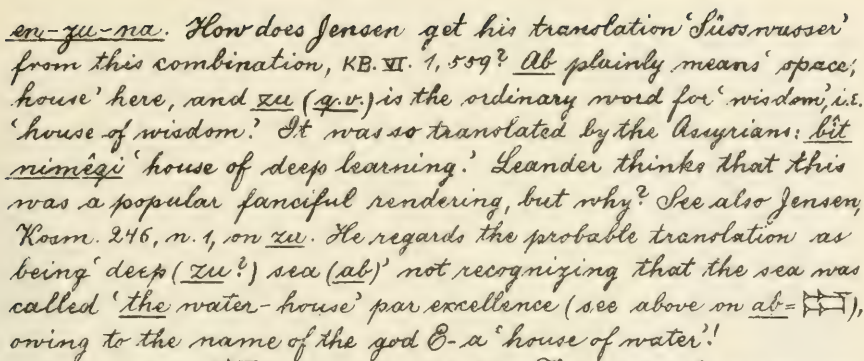 en-zu-na. How does Jensen get his translation 'Süsswasser'
from this combination, KB. VI. 1, 559? Ab plainly means 'space,
house' here, and zu (q.v.) is the ordinary word for 'wisdom', i.e.
'house of wisdom.' It was so translated by the Assyrians: bît
nimêqi 'house of deep learning.' Leander thinks that this
was a popular fanciful rendering, but why? See also Jensen,
Kosm. 246, n. 1, on zu. He regards the probable translation as
being 'deep (zu?) sea (ab)' not recognizing that the sea was
called 'the water-house' par excellence (see above on ab= ),
owing to the name of the god E-a 'house of water'!